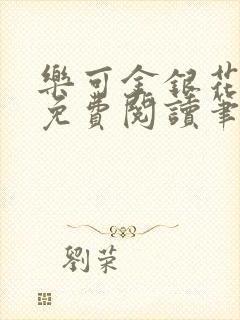 樂可金銀花
免費閱讀筆
劉荣